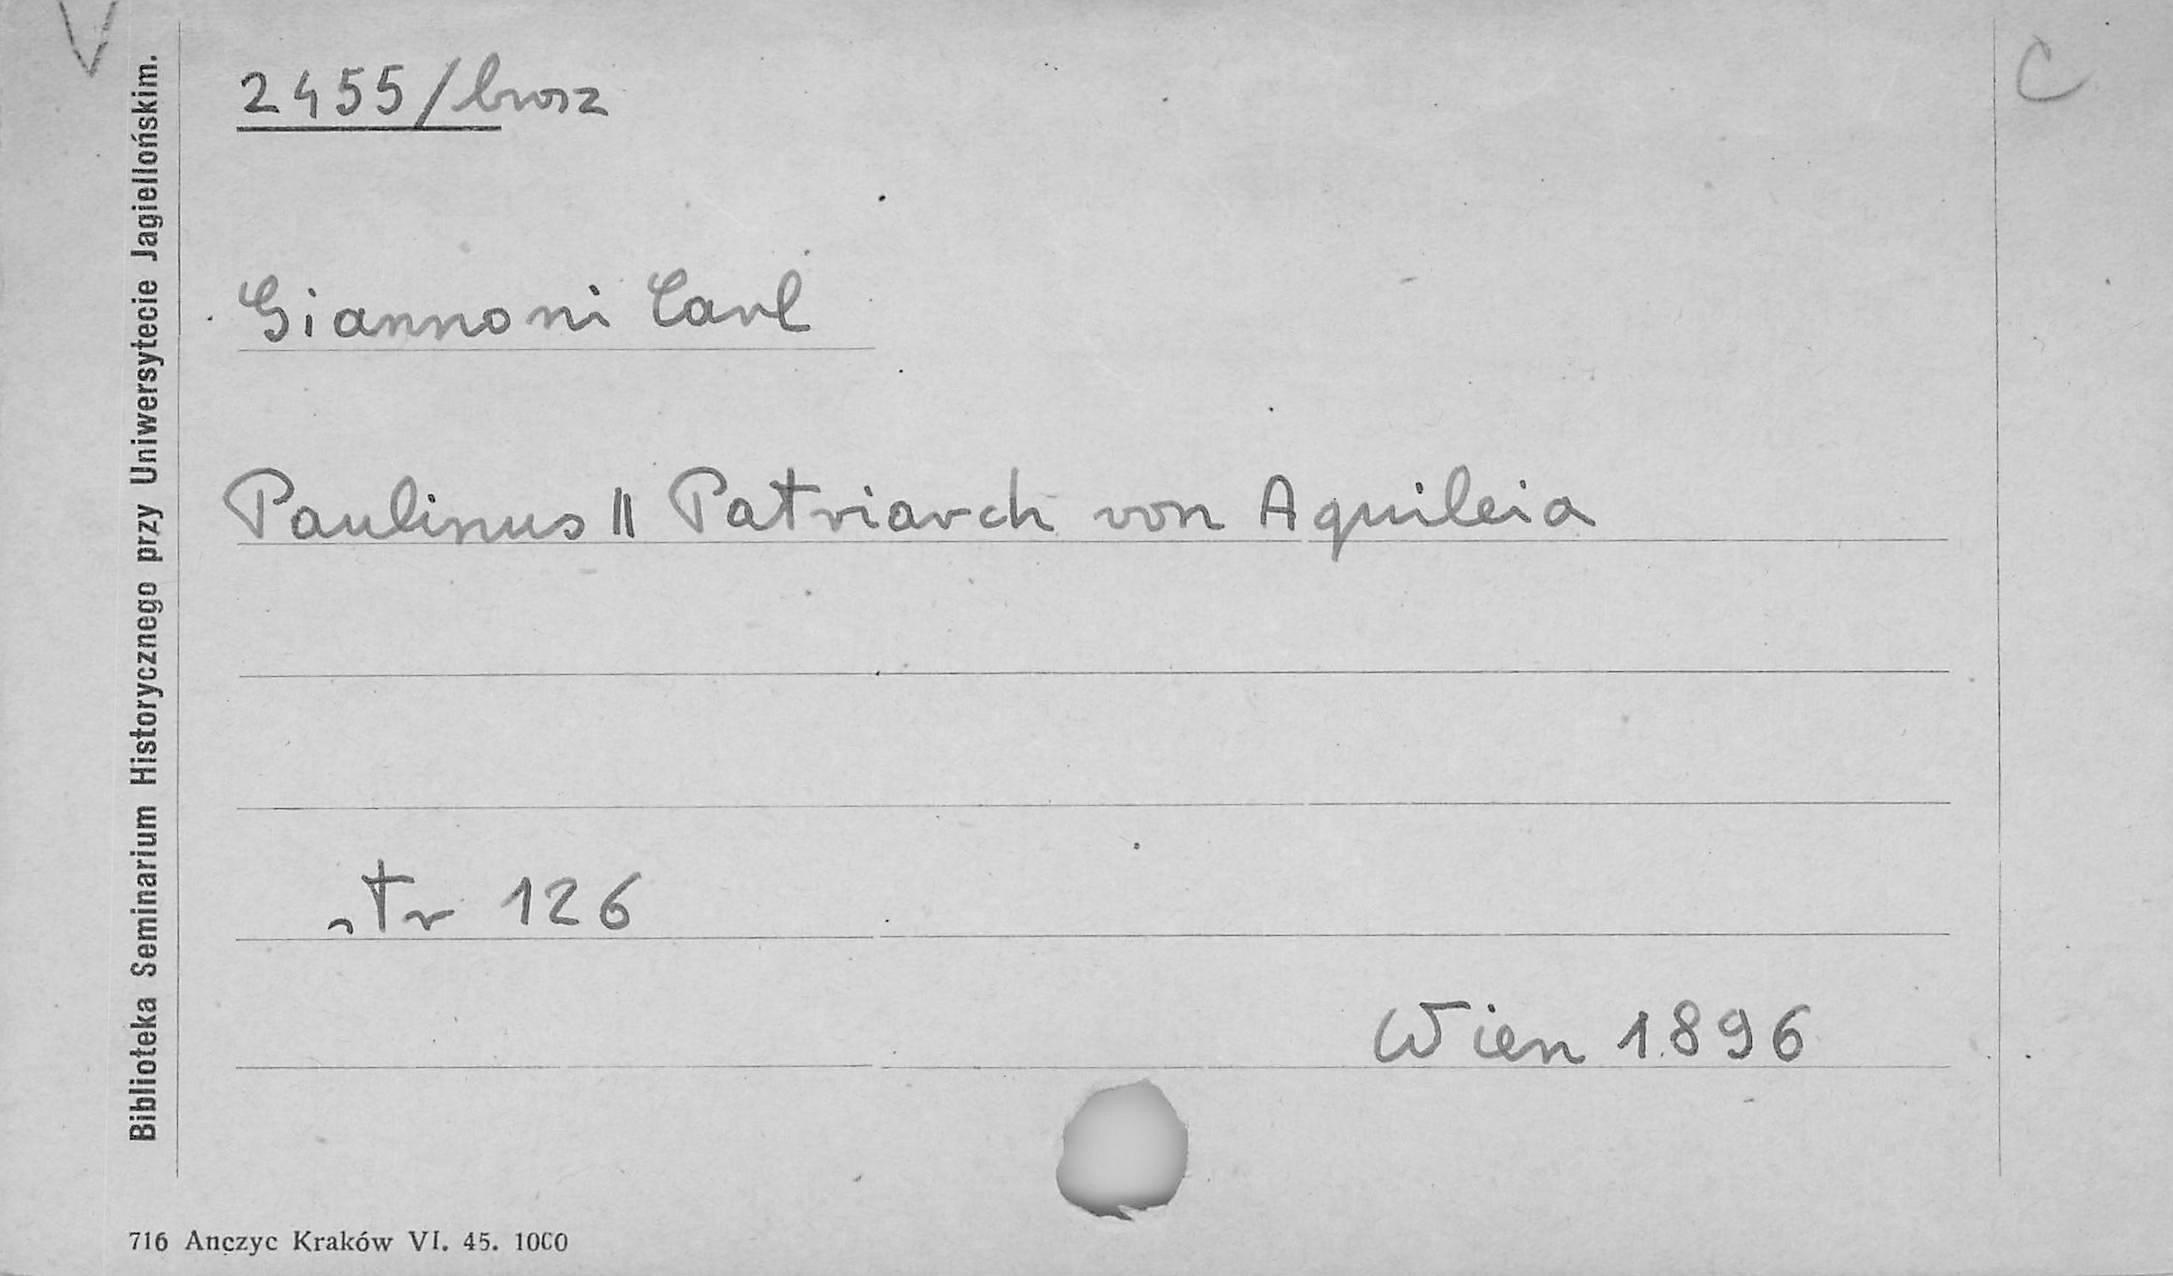 V
C
2455/brosz
Giannoni Carl
Paulinus II Patriarch von Aquileia
str 126
Wien 1896
Biblioteka Seminarium Historycznego przy Uniwersytecie Jagiellońskim.
716 Anczyc Kraków VI. 45. 1000